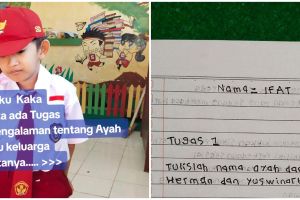 ku Kaka
ta ada Tugas
engalaman tentang Ayah
u keluarga
tanya..... >>>
Nama = IFAT
Tugas 1
Tulislah nama ayah da
Herman dan Yuswinar